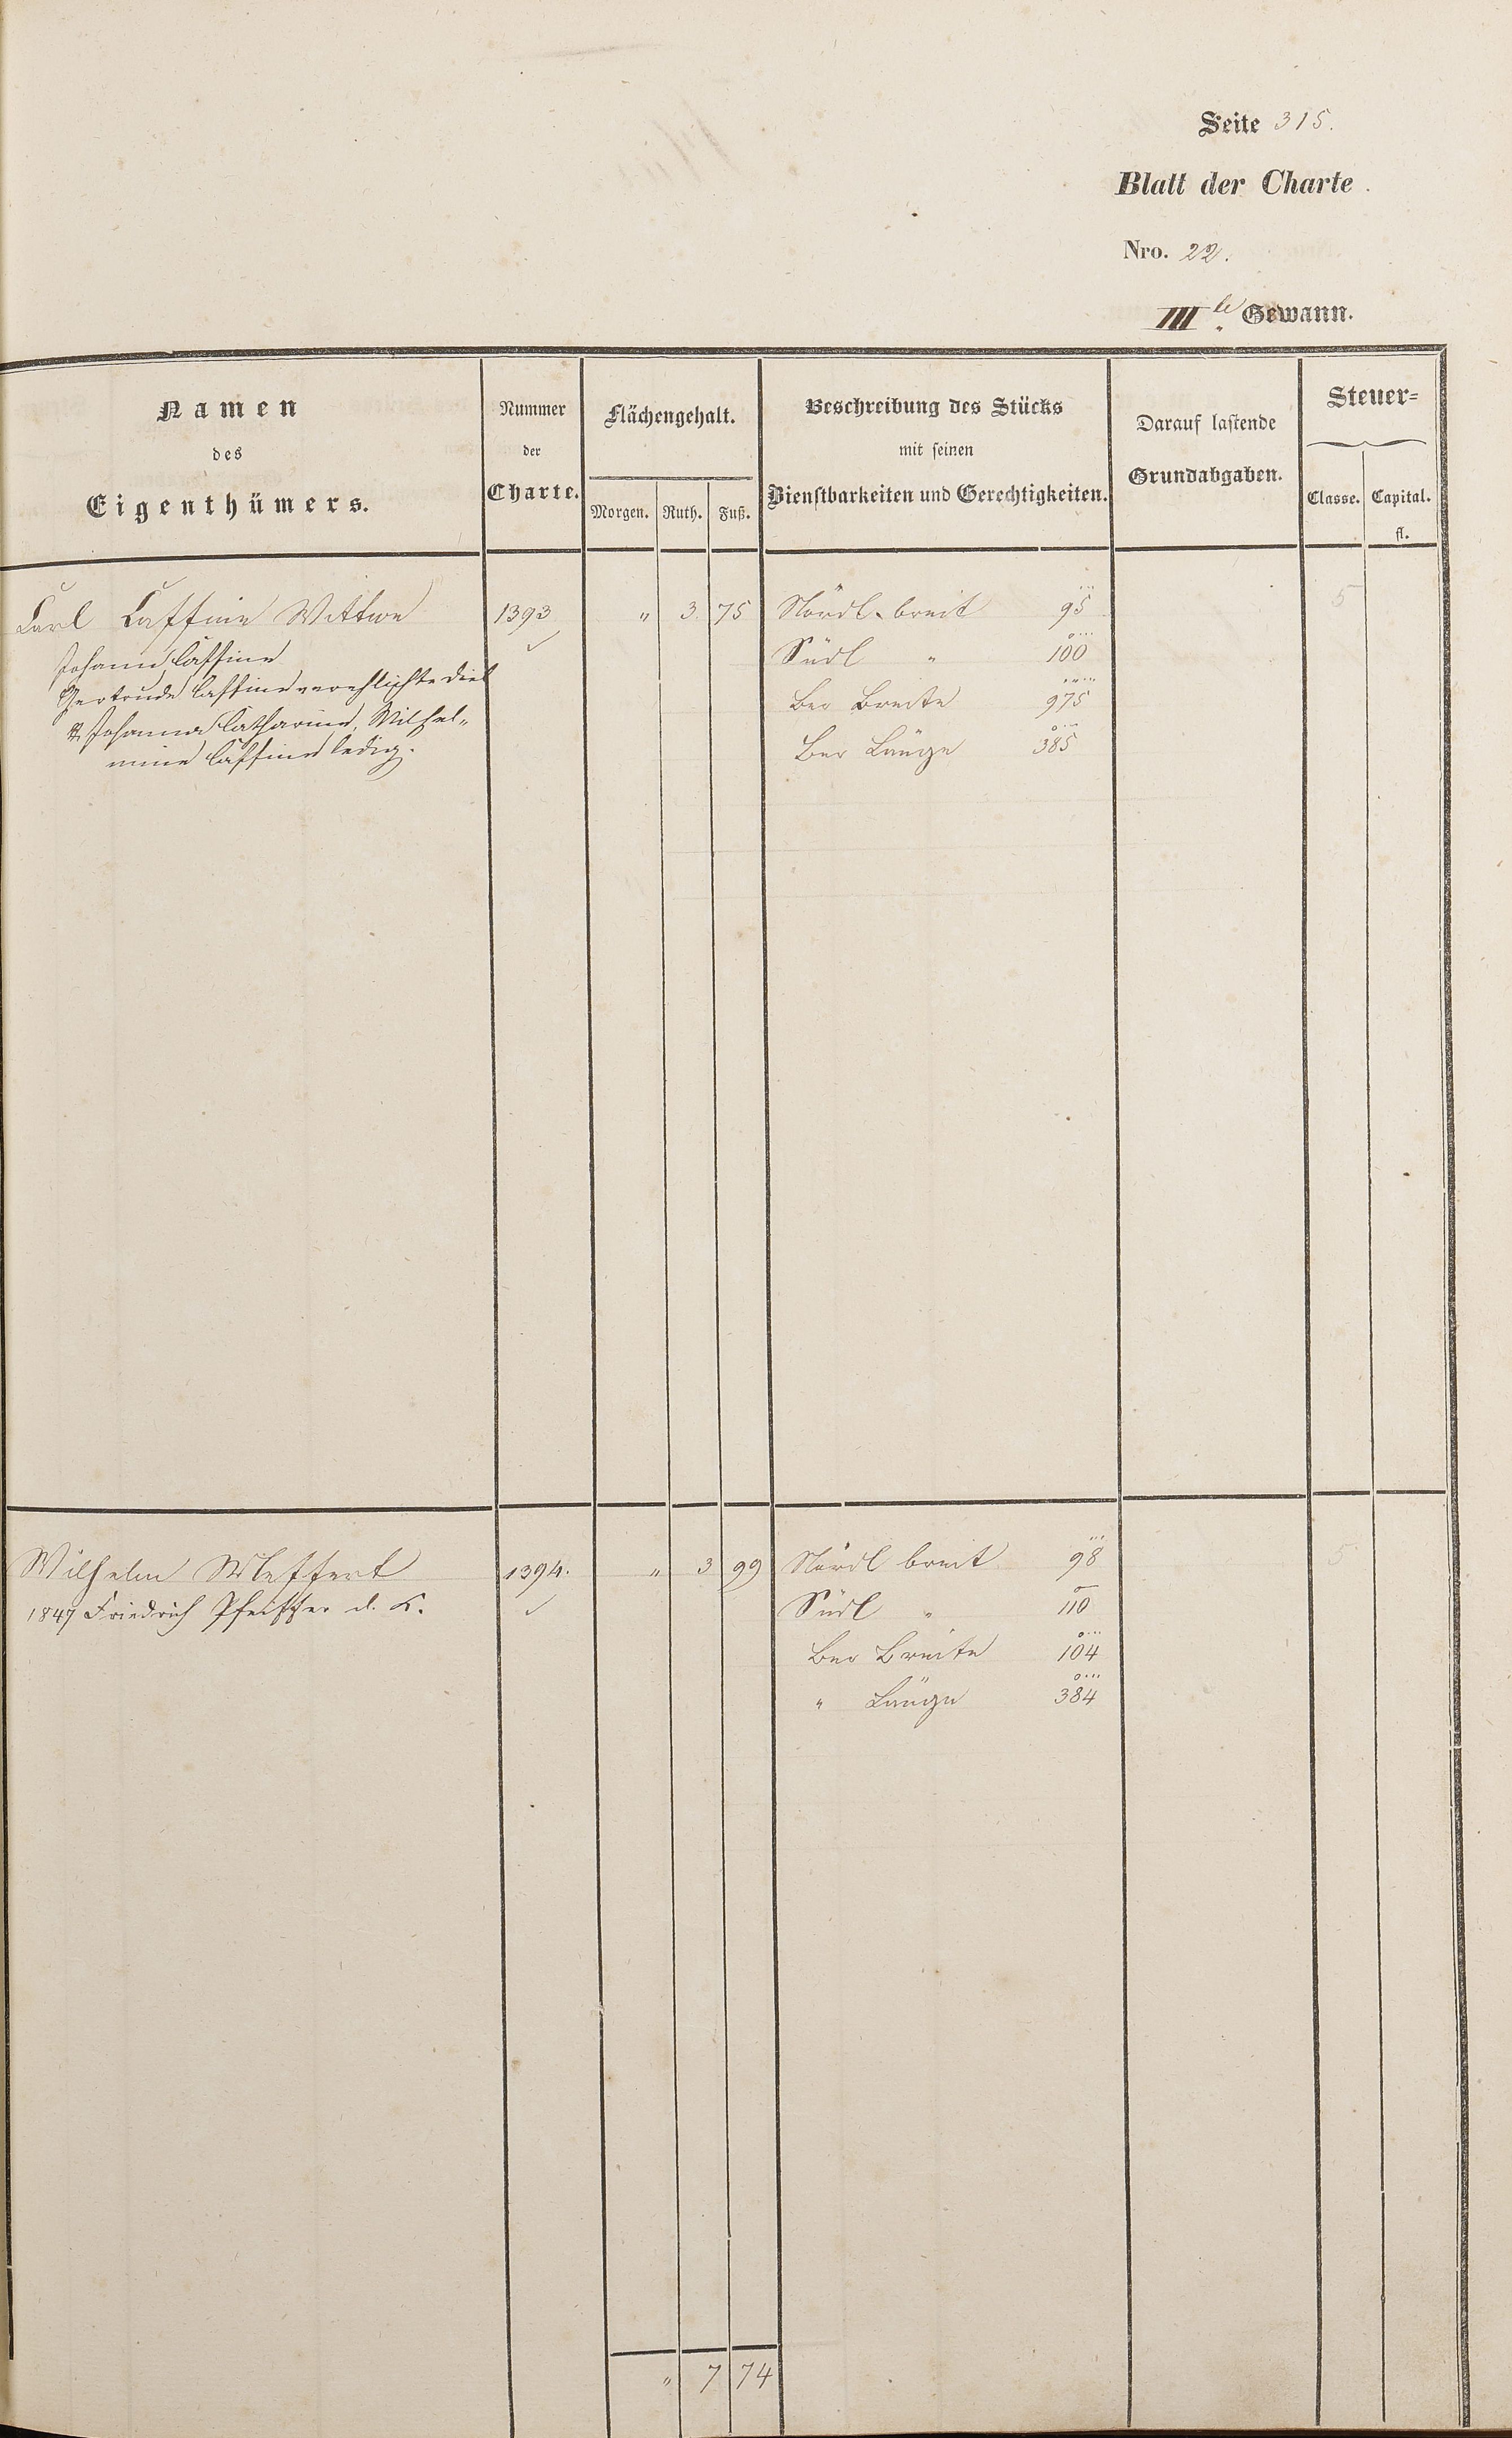 Seite 315.
Blatt der Charte.
Nro. 22.
IIIte Gewann.
Namen
des
Eigenthümers.
Nummer
der
Charte.
Flächengehalt.
Morgen. Ruth. Fuß.
Beschreibung des Stücks
mit seinen
Dienstbarkeiten und Gerechtigkeiten.
Darauf lastende
Grundabgaben.
Steuer-
Classe. Capital.
fl.
Carl Caffine Wittwe 1393 " 3. 75 Nördl. breit 95 5
Johann Caffine Südl " 100
Gertrude Caffine verehlichte Diel Ber Breite 975
& Johanna Catharine, Wilhel-
mine Caffine ledig. Ber Länge 385
Wilhelm Meffert 1394. " 3 99 Nördl breit 98 5
1847 Friedrich Pfeiffer d. K. Südl " 110
Ber Breite 104
" Länge 384
" 7 74